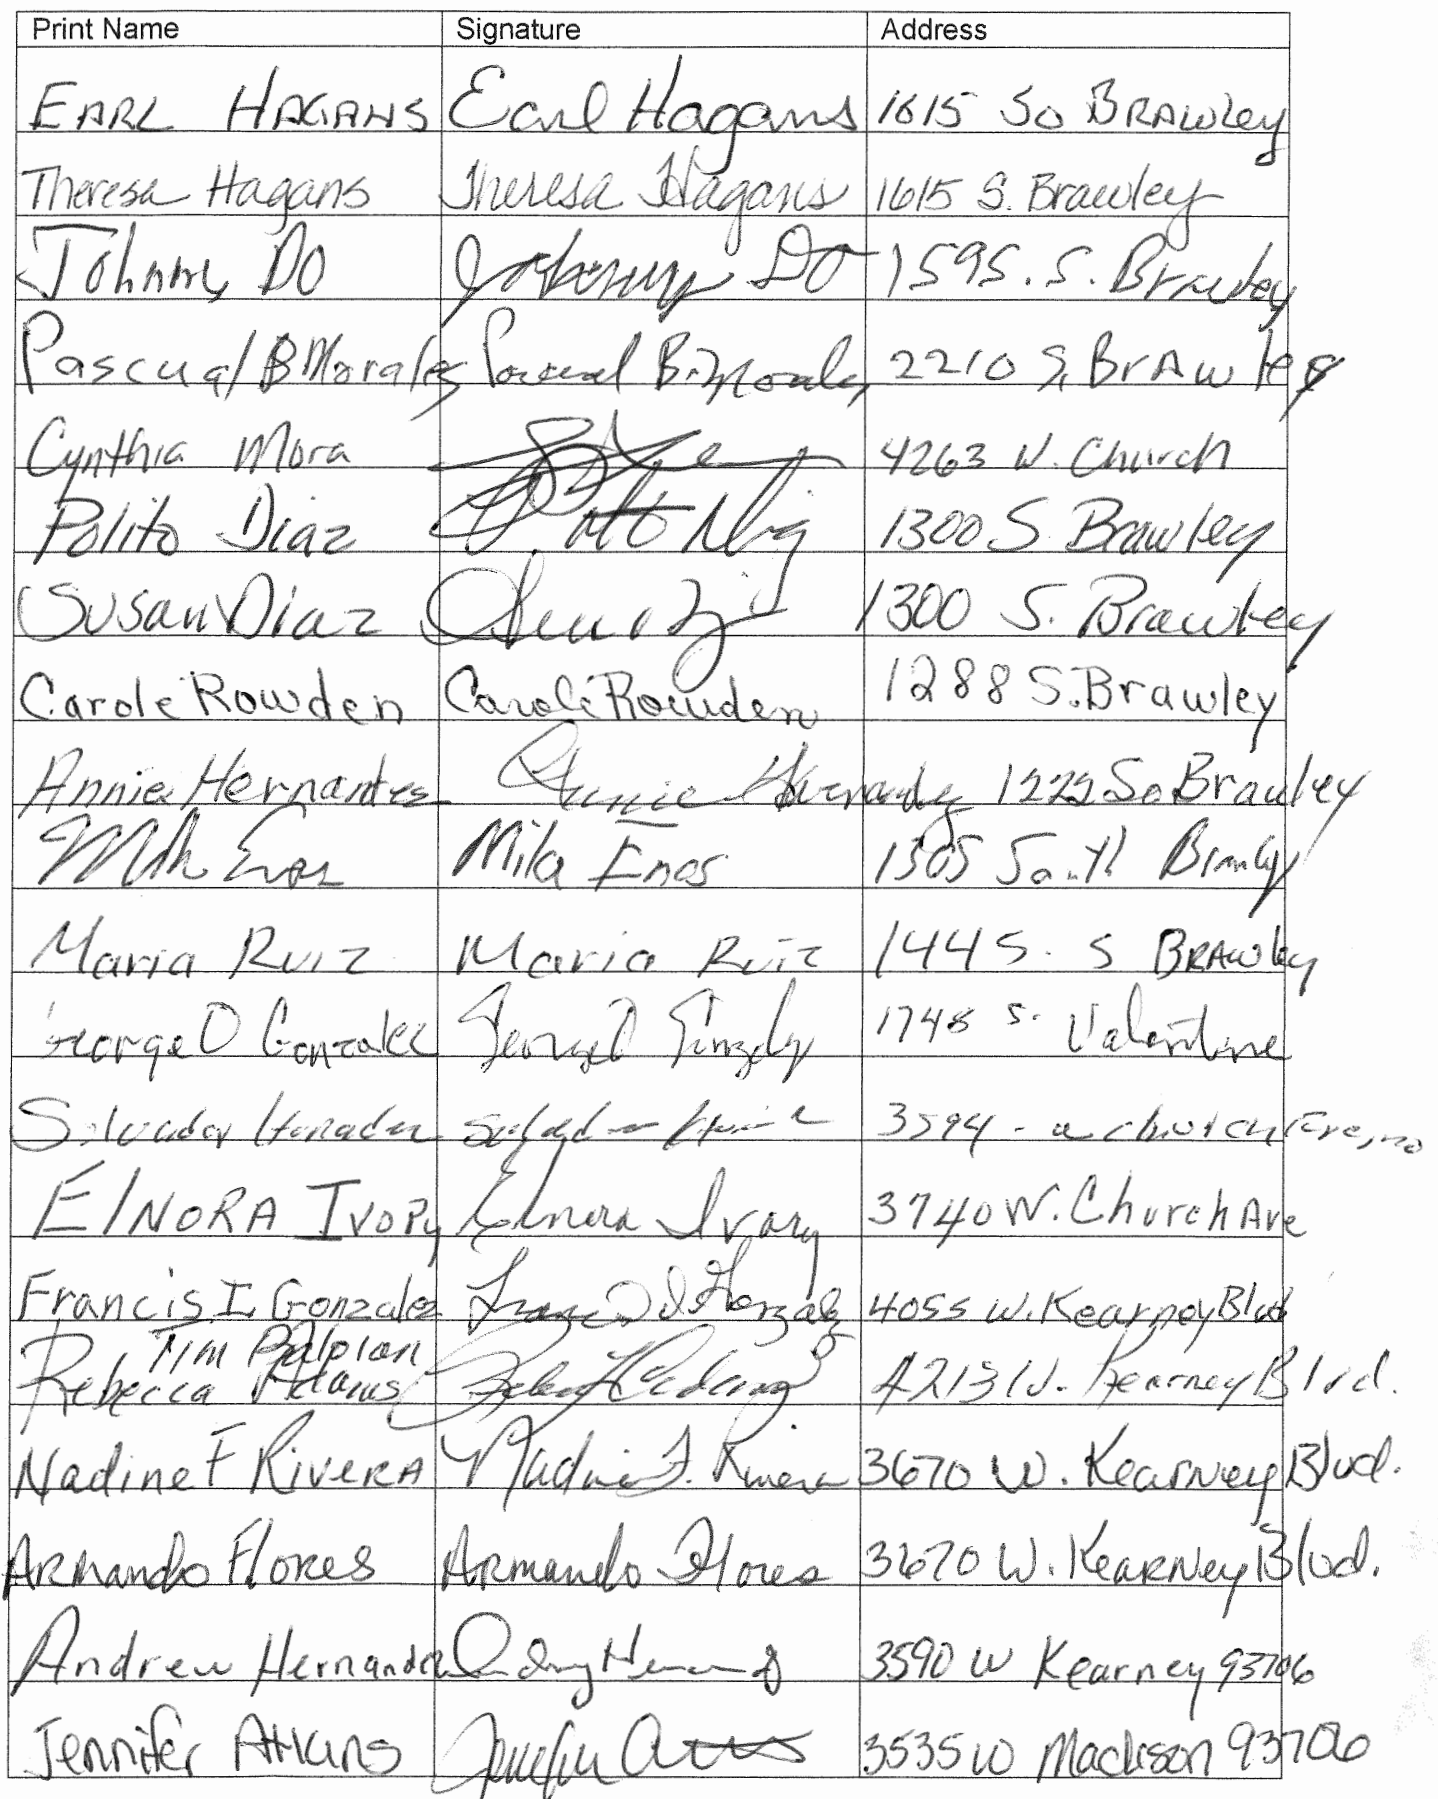 Print Name Signature Address
EARL HAGANS Earl Hagans 1615 So BRAWley
Theresa Hagans Theresa Hagans 1615 S. Brawley
Johnny Do Johnny Do 1595. S. Brawley
Pascual B Morales Pascual B. Morales 2210 S. BrAwley
Cynthia Mora 4263 W. Church
Polito Diaz 1300 S. Brawley
Susan Diaz 1300 S. Brawley
Carole Rowden Carole Rowden 1288 S. Brawley
Annie Hernantes Annie Hernandez 1222 So Brawley
Mila Enos Mila Enos 1505 South Brawley
Maria Ruiz Maria Ruiz 1445. S BRAWley
George O Gonzalez George O Gonzalez 1748 S. Valentine
Salvador 3594 - church Fresno
ElNORA IVORy Elnora Ivory 3740 W. Church Ave
Francis I. Gonzales Francis I Gonzales 4055 W. Kearney Blvd
Tim
Rebecca Adams 4213 W. Kearney Blvd.
Nadine F RiveRA Nadine F. Rivera 3670 W. Kearney Blvd.
ARMando Flores Armando Flores 3670 W. KeaRNey Blvd.
Andrew Hernandez 3590 W Kearney 93706
Jennifer Atkins 3535 W Madison 93706